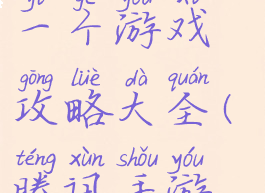 一个游戏
gōng lüè dà quán
攻略大全(
téng xùn shǒu yóu
腾讯手游